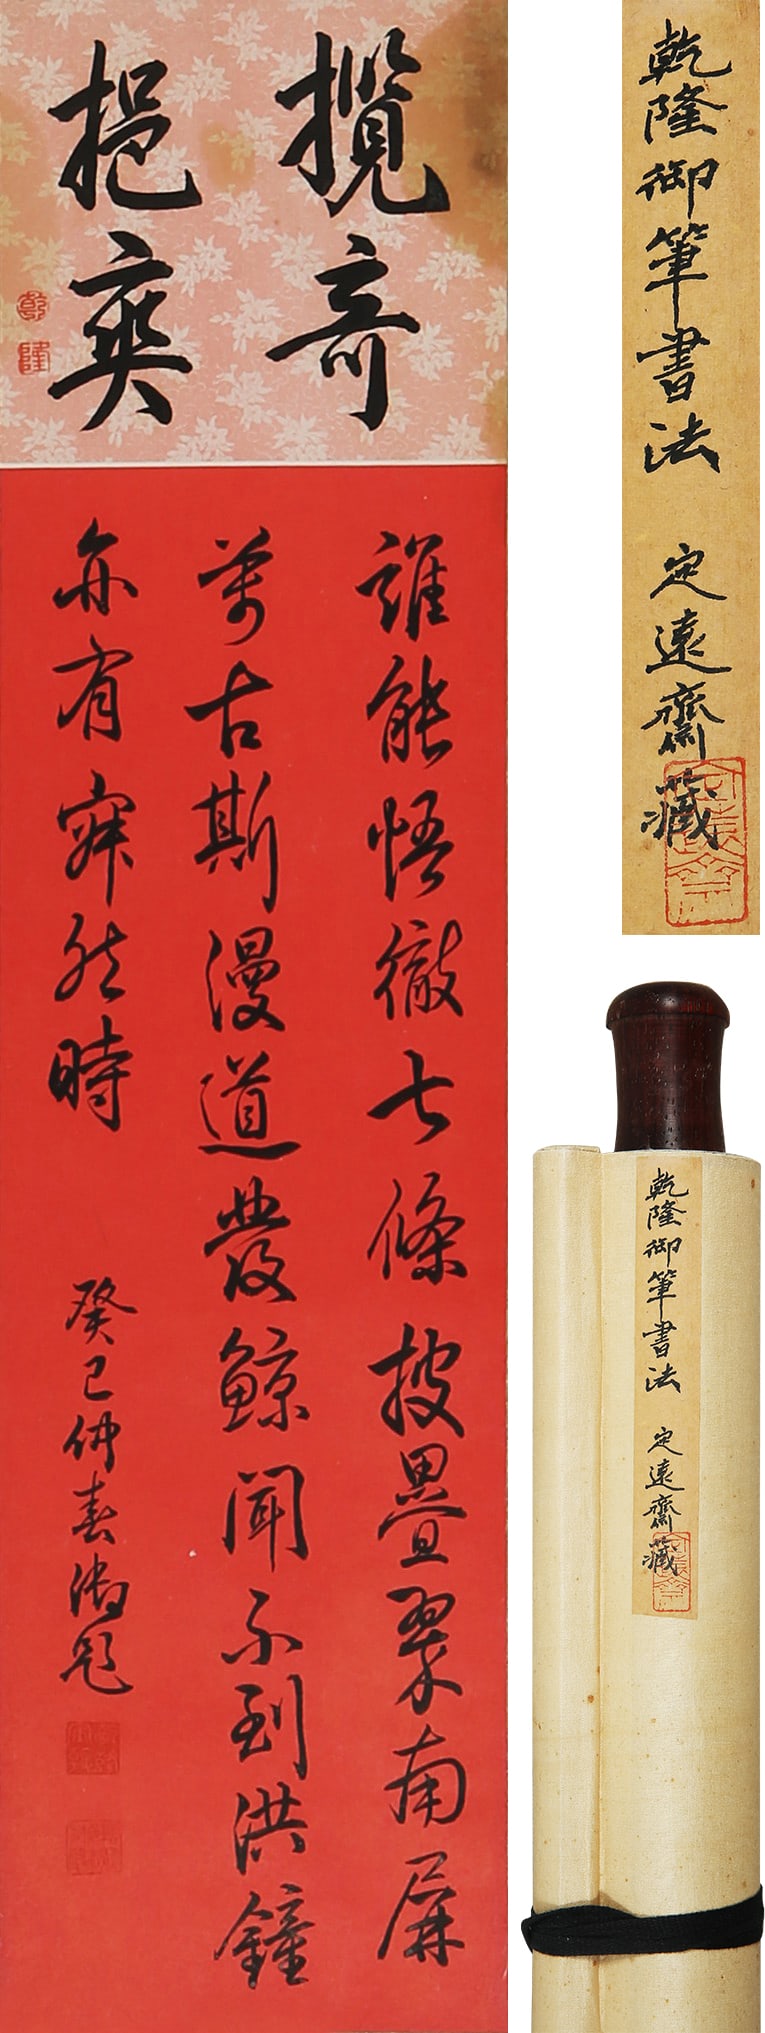 攬奇
挹爽
乾
隆
誰能悟徹七條披疊翠南屏
萬古斯漫道發鯨聞不到洪鐘
亦有寂然時
癸巳仲春御題
乾隆御筆書法 定遠齋藏
乾隆御筆書法 定遠齋藏